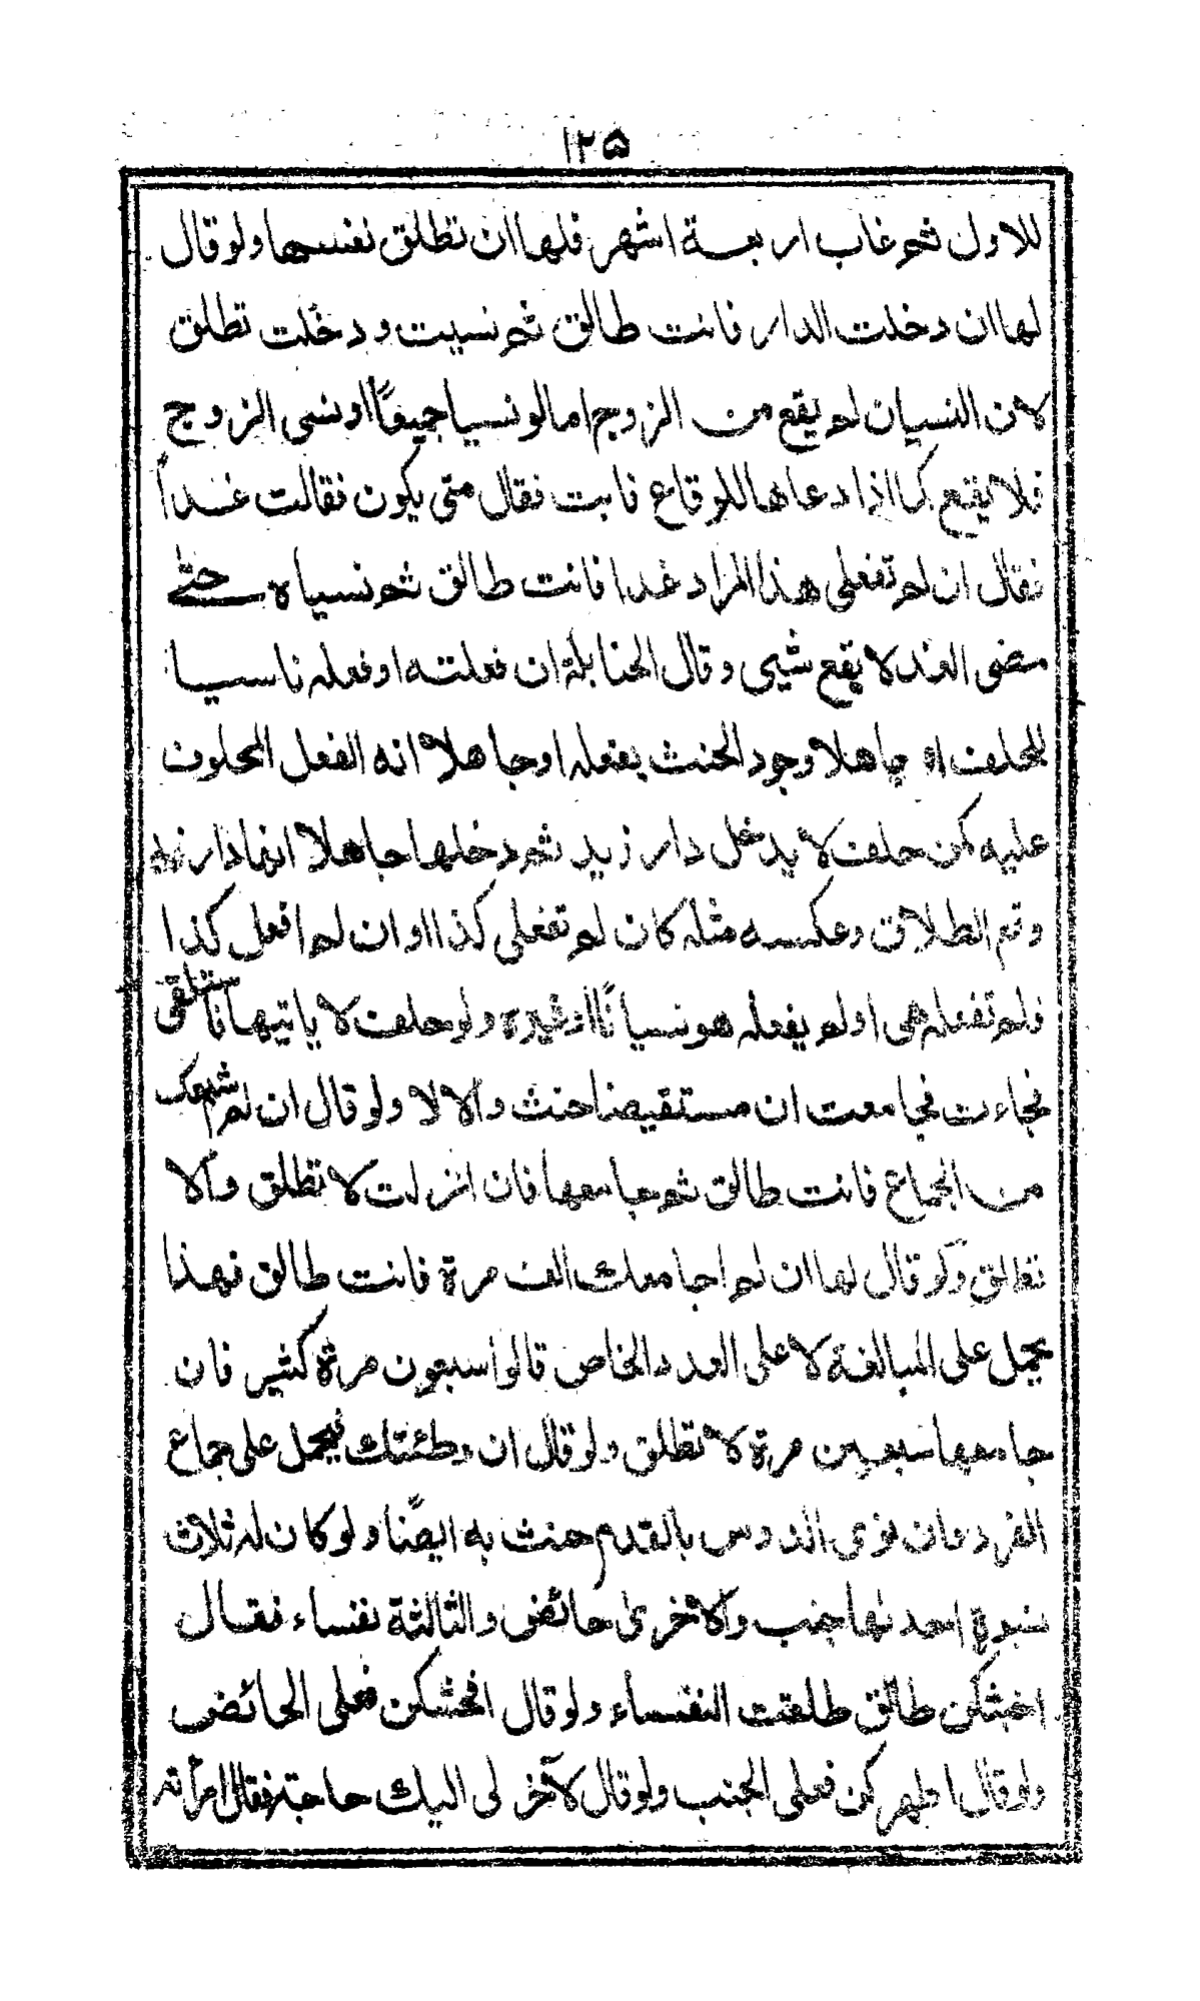 ١٢٥
للاول ثم غاب اربعة اشهر فلها ان تطلق نفسها ولو قال
لها ان دخلت الدار فانت طالق ثم نسيت ودخلت تطلق
لان النسيان لم يقع من الزوج اما لو نسيا جميعًا او نسى الزوج
فلا يقع كما اذا دعاها للوقاع فابت فقال متى يكون فقالت غداً
فقال ان لم تفعلى هذا المراد غدا فانت طالق ثم نسياه حتى
مضى الغد لا يقع شيى وقال الحنابلة ان فعلته او فعله ناسيا
للحلف او جاهلا وجود الحنث بفعله او جاهلا انه الفعل المحلوف
عليه كمن حلف لا يدخل دار زيد ثم دخلها جاهلا انها دار زيد
وقع الطلاق وعكسه مثله كان لم تفعلى كذا او ان لم افعل كذا
فلم تفعله هى او لم يفعله هو نسيانًا او غيره ولو حلف لا ياتيها فاستلقى
فجاءت فجامعت ان مستقيضا حنث والا لا ولو قال ان لم اشبعك
من الجماع فانت طالق ثم جامعها فان انزلت لا تطلق والا
تطلق ولو قال لها ان لم اجامعك الف مرة فانت طالق فهذا
يحمل على المبالغة لا على العدد الخاص قالوا سبعون مرة كثير فان
جامعها سبعين مرة لا تطلق ولو قال ان وطئتك فيحمل على جماع
الفرد فان نوى الدوس بالقدم حنث به ايضًا ولو كان له ثلاث
نسوة احدىها جنب والاخرى حائض والثالثة نفساء فقال
اخبثكن طالق طلقت النفساء ولو قال افحشكن فعلى الحائض
ولو قال اطهركن فعلى الجنب ولو قال لآخر لى اليك حاجة فقال امرأته